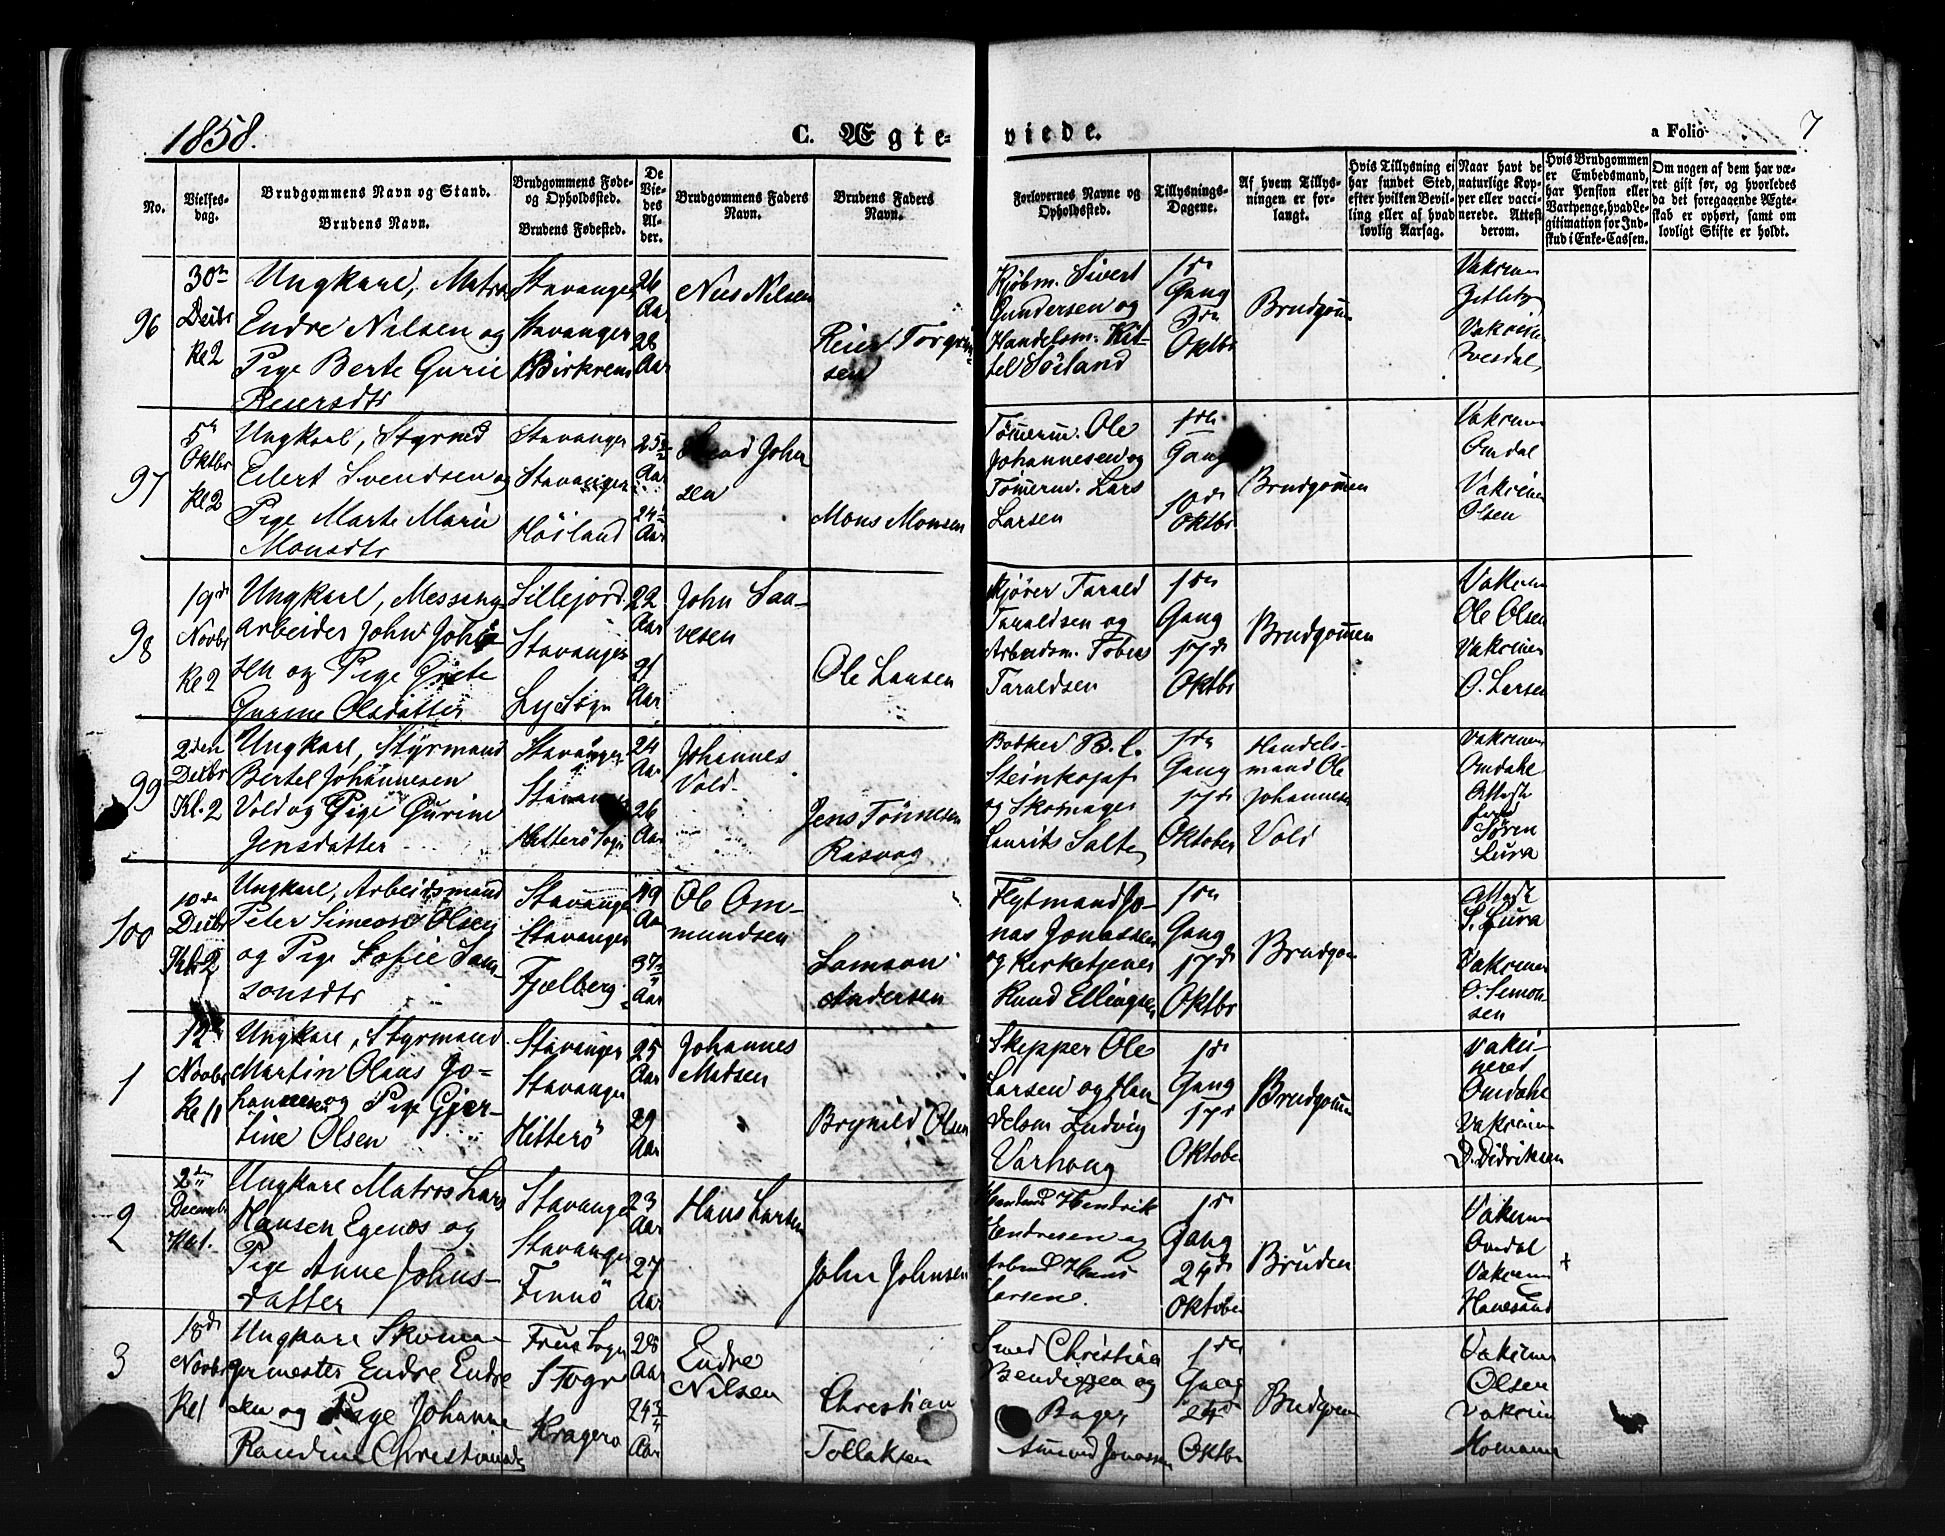 1858.
C. Ægte-
viede.
a Folio
7
No.
Vielses-
dag.
Brudgommens Navn og Stand.
Brudens Navn.
Brudgommens Føde-
og Opholdssted.
Brudens Fødested.
De
Vie-
des
Al-
der.
Brudgommens Faders
Navn.
Brudens Faders
Navn.
Forlovernes Navne og
Opholdssted.
Tillysnings-
Dagene.
Af hvem Tillys-
ningen er for-
langt.
Hvis Tillysning ei
har fundet Sted,
efter hvilken Bevil-
ling eller af hvad
lovlig Aarsag.
Naar havt de
naturlige Kop-
per eller vacci-
nerede. Attest
derom.
Hvis Brudgommen
er Embedsmand,
har Pension eller
Vartpenge, hvad Le-
gitimation for Ind-
skud i Enke-Cassen.
Om nogen af dem har væ-
ret gift før, og hvorledes
da det foregaaende Ægte-
skab er ophørt, samt om
lovligt Skifte er holdt.
96
30te
Decbr
Kl 2
Ungkarl, Matros
Endre Nilsen og
Pige Berte Gurie
Reiersdtr
Stavanger
Stavanger
Birkrem
26
Aar
28
Aar
Niels Nilsen
Reier Torgrim-
sen
Kjøbm. Sivert
Gundersen og
Handelsm. Kit-
tel Söiland
1ste
Gang
3die
Oktbr
Brudgom
Vakciner
Vakciner
97
5te
Oktbr
Kl 2
Ungkarl, Styrmd
Eilert Svendsen og
Pige Marte Marie
Monsdtr
Stavanger
Stavanger
Höiland
25
Aar
24
Aar
Svend John
sen
Mons Monsen
Tömerm. Ole
Johannesen og
Tömerm. Lars
Larsen
1ste
Gang
10de
Oktbr
Brudgommen
Vakciner
Omdal
Vakciner
Olsen
98
19de
Novbr
Kl 2
Ungkarl, Messing-
arbeider John John
sen og Pige Grete
Gurine Olsdatter
Sillejord
Stavanger
Lye Sogn
22
Aar
21
Aar
John Sau-
vesen
Ole Lausen
Kjörer Tarald
Taraldsen og
Arbeidsm. Tobias
Taraldsen
1ste
Gang
17de
Oktbr
Brudgommen
Vakciner
Ole Olsen
Vakciner
O. Larsen
99
2den
Decbr
Kl. 2
Ungkarl, Styrmand
Bertel Johannesen
Vold og Pige Gurine
Jensdatter
Stavanger
Stavanger
Hitterö Sogn
24
Aar
26
Aar
Johannes
Vold
Jens Tönnesen
Rasvag
Bödker B. C.
Steinkopf
og Skomager
Laurits Salte
1ste
Gang
17de
Oktober
Handels-
mand Ole
Johannesen
Vold
Vakciner
Omdahl
Attest
fra
Sören
Lura
100
10de
Decbr
Kl. 2
Ungkarl, Arbeidsmand
Peter Simeon Olsen
og Pige Sofie Sam
sonsdtr
Stavanger
Stavanger
Fjælberg
49
Aar
37
Aar
Ole Om-
mundsen
Samson
Andersen
Flytmand Jo-
nas Jonassen
og Kirketjener
Knud Ellingsen
1ste
Gang
17de
Oktbr
Brudgom
Attest
S. Lura
Vakciner
O. Simon
sen
1
12te
Novbr
Kl 11
Ungkarl, Styrmand
Martin Olaus Jo-
hannesen og Pige Gjer-
tine Olsen
Stavanger
Stavanger
Hitterö
25
Aar
29
Aar
Johannes
Madsen
Brynild Olsen
Skipper Ole
Larsen og Han
delsm Ludvig
Varhoug
1ste
Gang
17de
Oktober
Brudgommen
Vakci-
neret
Omdahl
Vakciner
D. Didriksen
2
2den
Decembr
Kl 1.
Ungkarl Matros Lars
Hansen Egenæs og
Pige Anne Johns-
datter
Stavanger
Stavanger
Finnö
23
Aar
27
Aar
Hans Larsen
John Johnsen
Hendrik
Endresen og
Arbmd Hans
Larsen
1ste
Gang
24de
Oktober
Bruden
Vakciner
Omdal
Vakciner
Hanesand
+
3
18de
Novbr
Kl 1
Ungkarl Skoma-
germester Endre Endre
sen og Pige Johanne
Randine Christiansdtr
Frue Sogn
Sogn
Kragerö
28
Aar
24 3/4
Aar
Endre
Nilsen
Christian
Tollaksen
Smed Christian
Bendixen og
Bager
Amund Jonassen
1ste
Gang
24de
Oktbr
Brudgom
Vakciner
Olsen
Vakcin
Homann